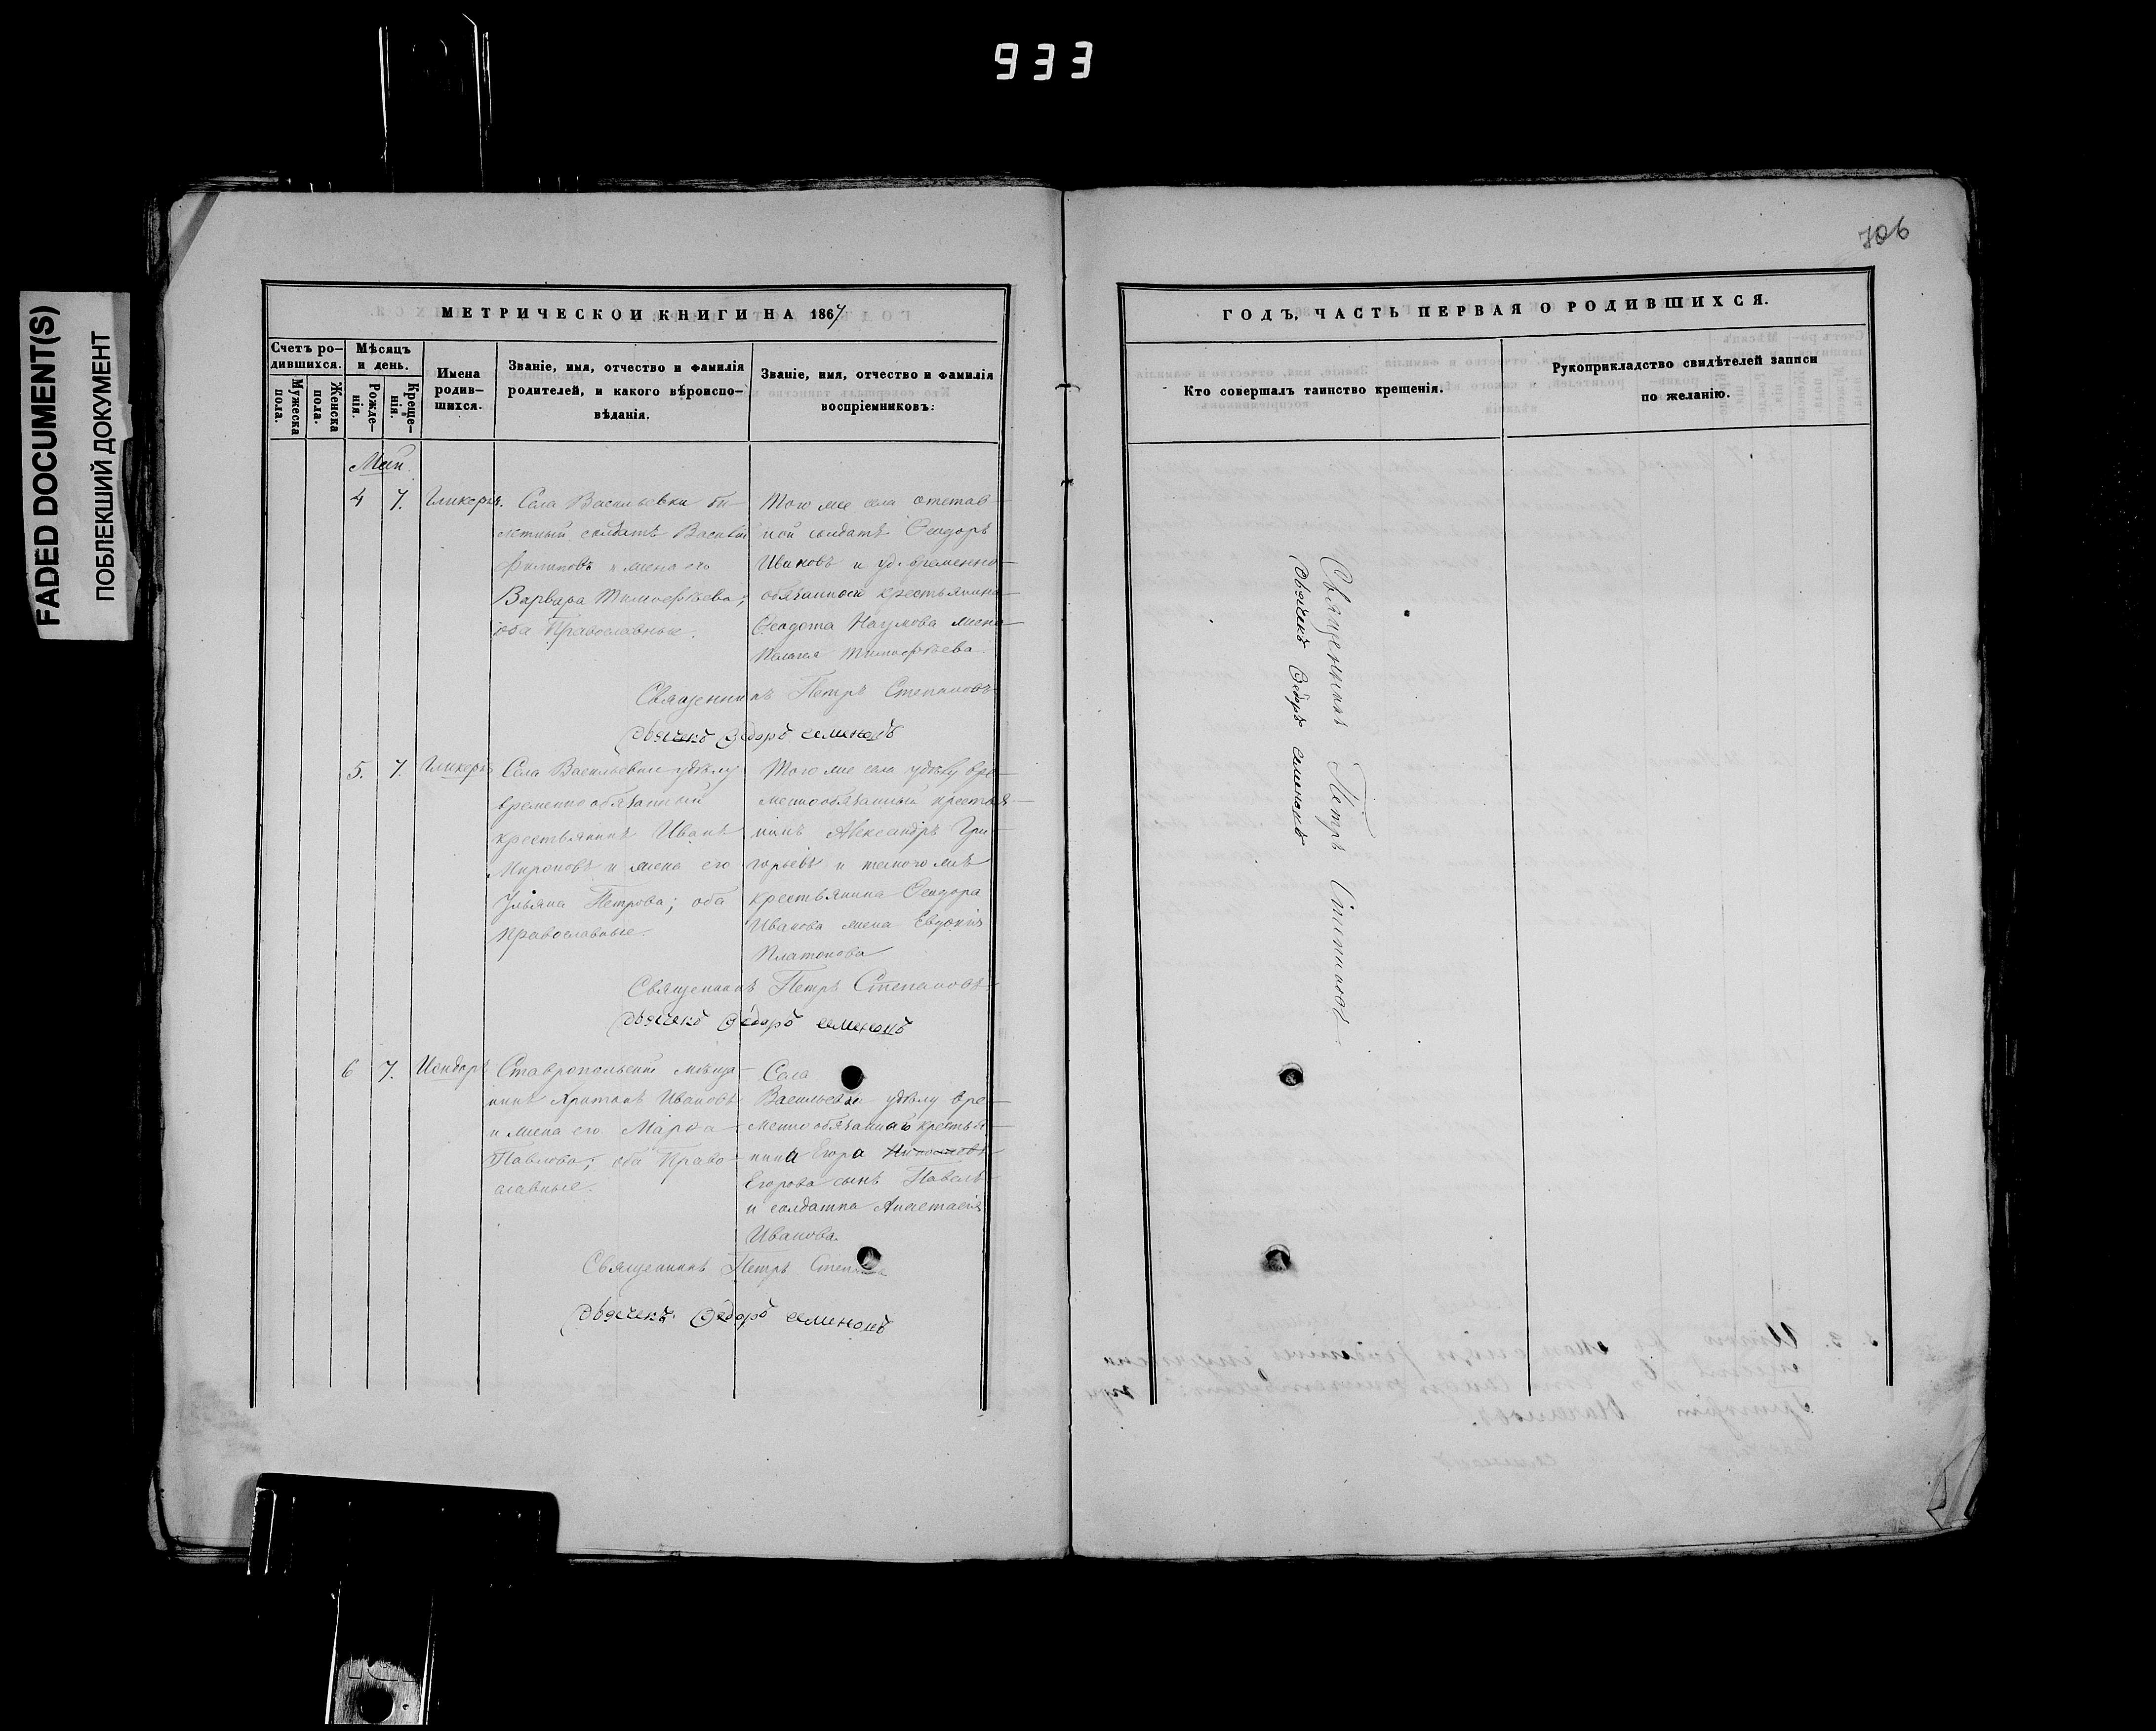 933
FADED DOCUMENT(S)
ПОБЛЕКШИЙ ДОКУМЕНТ
706
МЕТРИЧЕСКОИ КНИГИ НА 1867
Счетъ ро-
дившихся.
Мужеска
пола.
Женска
пола.
Мѣсяцъ
и день.
Рожде-
нія.
Креще-
нія.
Имена
родив-
шихся.
Званіе, имя, отчество и фамилія
родителей, и какого вѣроиспо-
вѣданія.
Званіе, имя, отчество и фамилія
воспріемниковъ:
Май.
4 7. Гликерія.
Села Васильевки би-
летный солдатъ Василій
Филиповъ и жена его
Варвара Тимофѣева;
оба Православные.
Того же села отстав-
ной солдатъ Ѳеодоръ
Ивановъ и уд. временно-
обязаннаго крестьянина
Ѳеодота Наумова жена
Пелагея Тимофѣева.
Священникъ Петръ Степановъ
Дьячекъ Ѳедоръ семеновъ
5. 7. Гликерія
Села Васильевки удѣлу
временнообязанный
крестьянинъ Иванъ
Мироновъ и жена его
Ульяна Петрова; оба
Православные.
Того же села удѣлу вре-
меннообязанный крестья-
нинъ Александръ Гри-
горьевъ и такого же
крестьянина Ѳеодора
Иванова жена Евдокія
Платонова
Священникъ Петръ Степановъ
Дьячекъ Ѳедоръ семеновъ
6 7. Исидоръ
Ставропольскій мѣща-
нинъ Харитонъ Ивановъ
и жена его Марѳа
Павлова; оба Право-
славные.
Села
Васильевки удѣлу вре-
меннообязаннаго крестья-
нина Егора
Егорова сынъ Павелъ
и солдатка Анастасія
Иванова.
Священникъ Петръ Степановъ
Дьячекъ Ѳедоръ семеновъ
ГОДЪ, ЧАСТЬ ПЕРВАЯ О РОДИВШИХСЯ.
Кто совершалъ таинство крещенія.
Рукоприкладство свидѣтелей записи
по желанію.
Священникъ Петръ Степановъ
Дьячекъ Ѳедоръ семеновъ